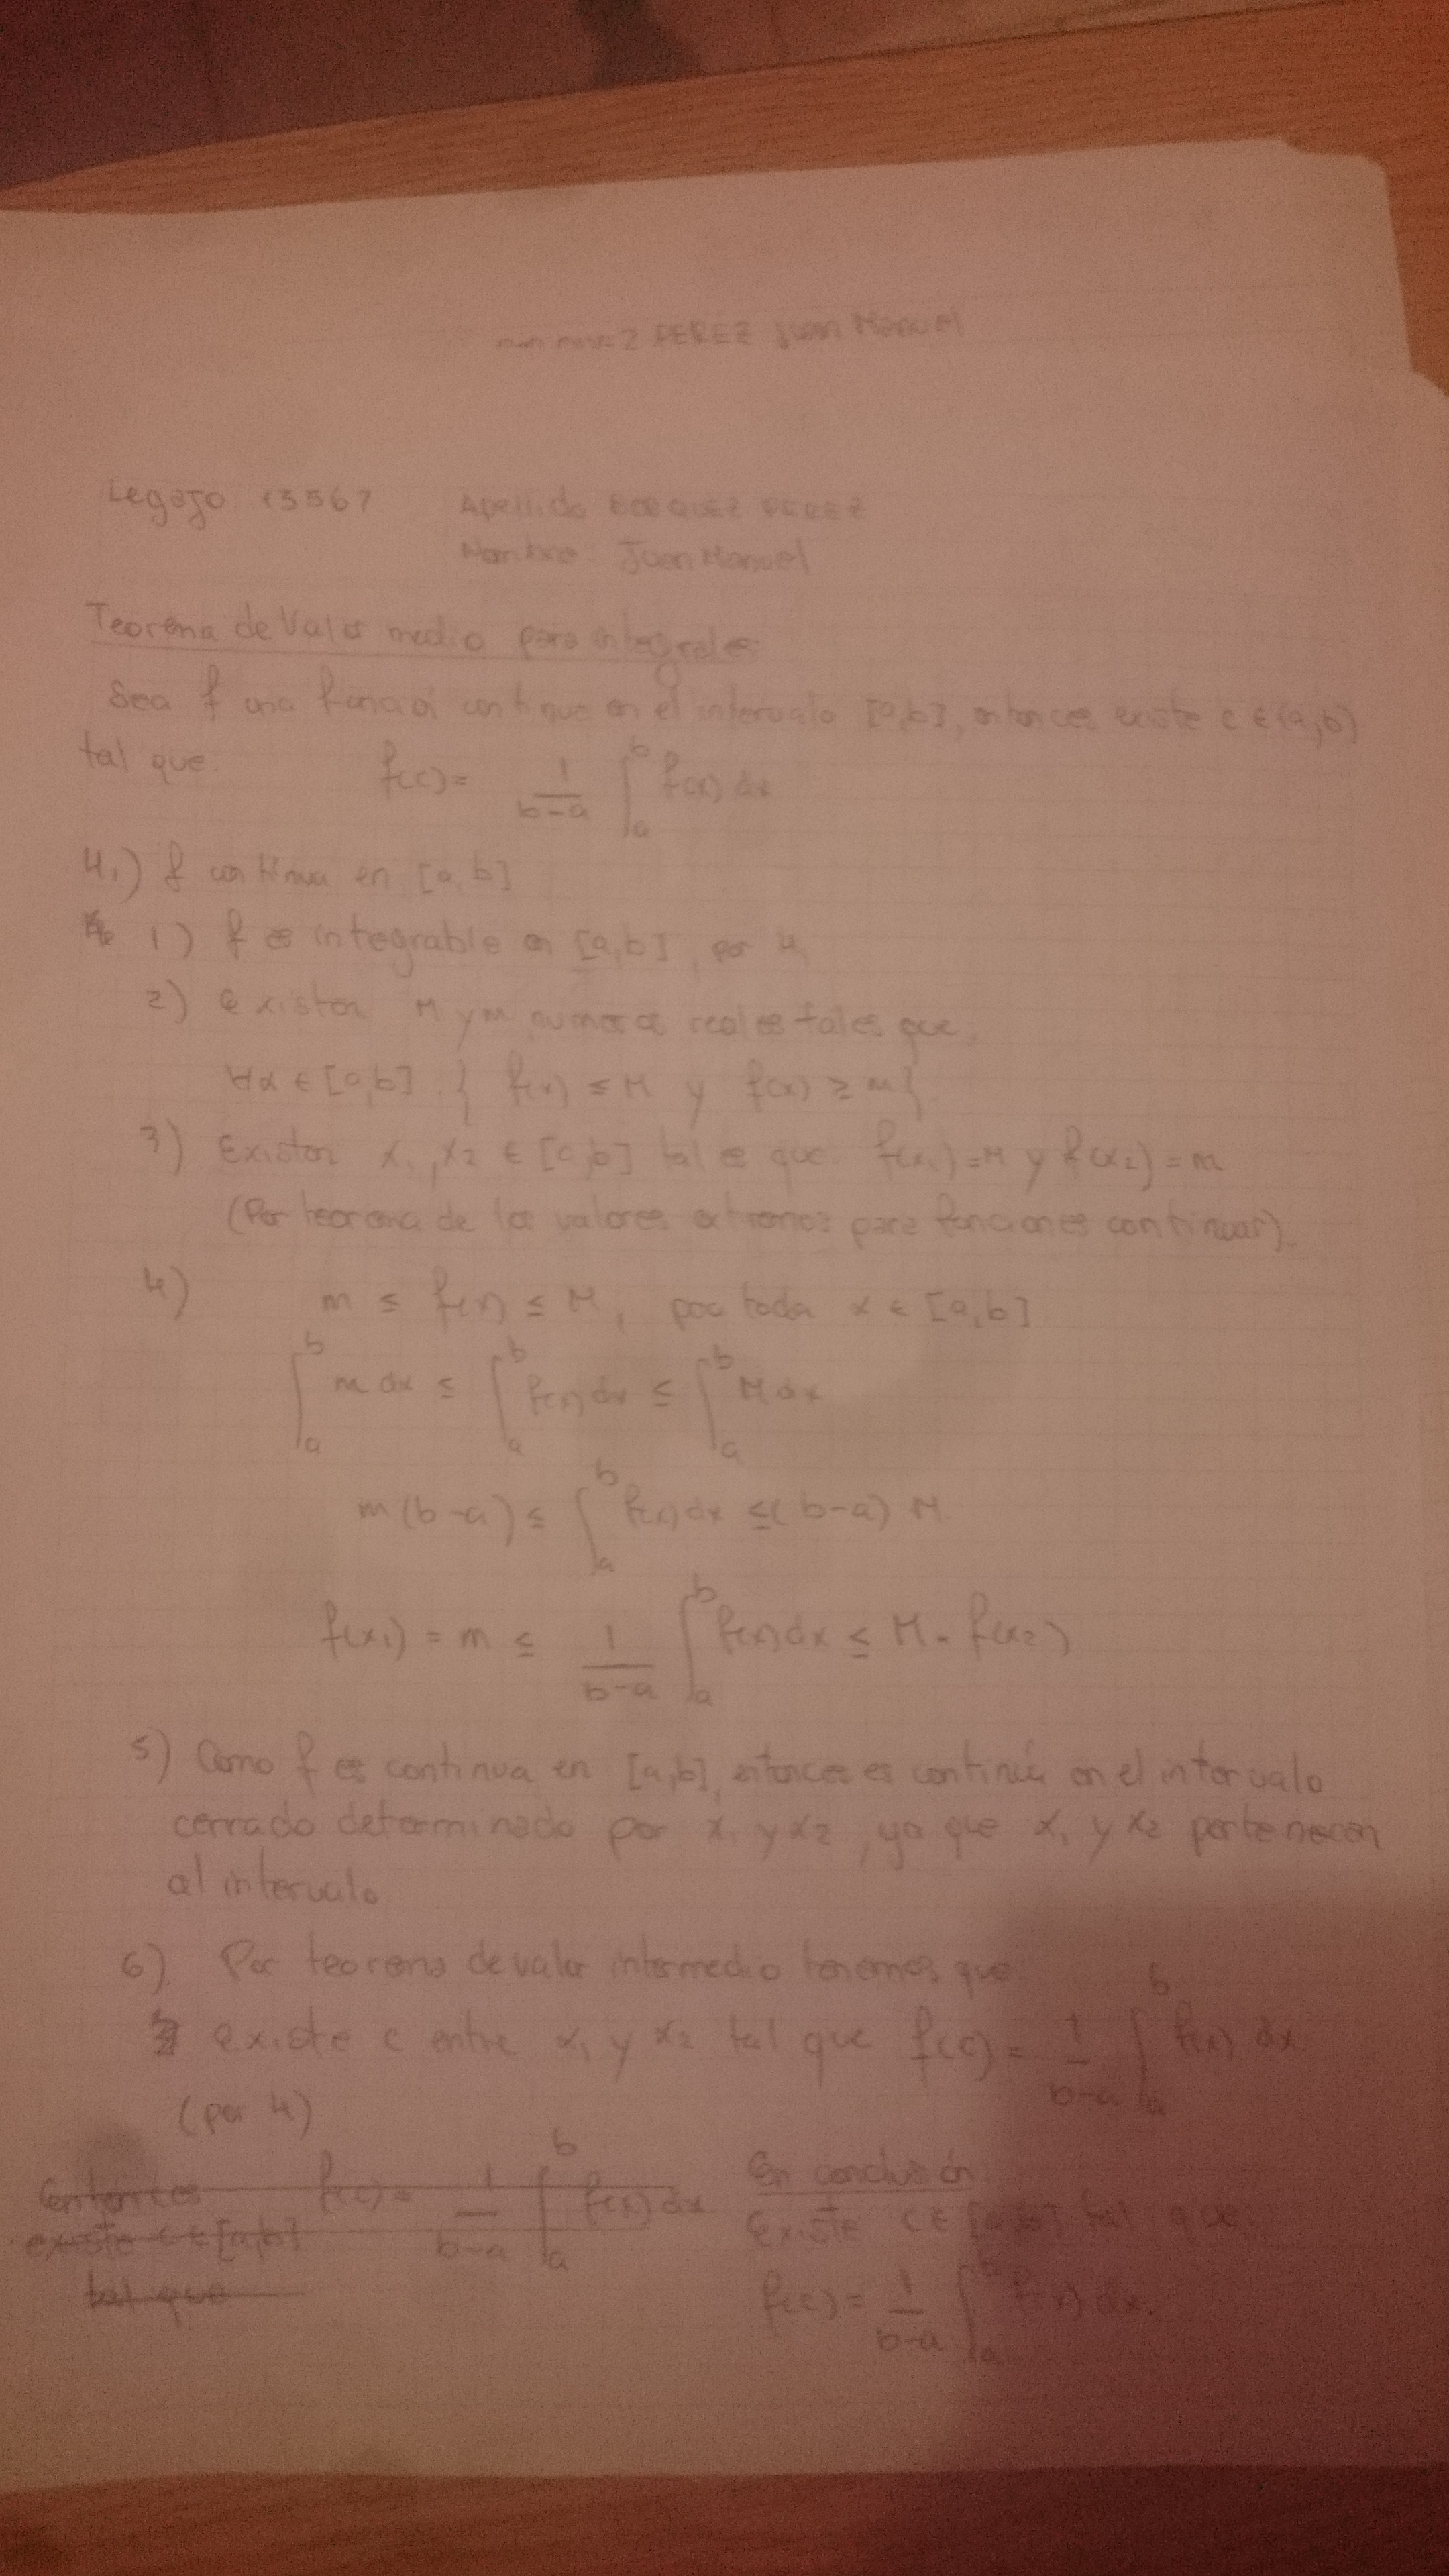 PEREZ Juan Manuel
Legajo 15567 Apellido PEREZ
Nombre: Juan Manuel
Teorema de Valor medio para integrales
Sea f una función continua en el intervalo [a,b], entonces existe c ∈ (a,b)
tal que f(c) = 1/(b-a) ∫_a^b f(x) dx
H1) f continua en [a,b]
1) f es integrable en [a,b], por H1
2) existen M y m numeros reales tales que
∀x ∈ [a,b] : { f(x) ≤ M y f(x) ≥ m }
3) Existen x1, x2 ∈ [a,b] tales que f(x1) = M y f(x2) = m
(Por teorema de los valores extremos para funciones continuas).
4) m ≤ f(x) ≤ M, por toda x ∈ [a,b]
∫_a^b m dx ≤ ∫_a^b f(x) dx ≤ ∫_a^b M dx
m(b-a) ≤ ∫_a^b f(x) dx ≤ (b-a) M
f(x1) = m ≤ 1/(b-a) ∫_a^b f(x) dx ≤ M = f(x2)
5) Como f es continua en [a,b], entonces es continua en el intervalo
cerrado determinado por x1 y x2, ya que x1 y x2 pertenecen
al intervalo
6) Por teorema de valor intermedio tenemos que
existe c entre x1 y x2 tal que f(c) = 1/(b-a) ∫_a^b f(x) dx
(por 4)
Entonces f(c) = 1/(b-a) ∫_a^b f(x) dx
existe c ∈ [a,b]
tal que
En conclusión:
Existe c ∈ [a,b] tal que:
f(c) = 1/(b-a) ∫_a^b f(x) dx.